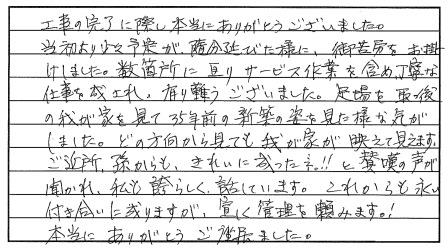 工事の完了に際し本当にありがとうございました。
当初より少々予定が、随分延びた様に、御苦労をお掛
けしました。数箇所に亘りサービス作業を含め丁寧な
仕事を成され、有り難うございました。足場を取った後
の我が家を見て35年前の新築の姿を見た様な気が
しました。どの方向から見ても我が家が映えて見えます。
ご近所、孫からも、きれいに成ったネ!!と賛嘆の声が
聞かれ、私も誇らしく、話しています。これからも永い
付き合いに成りますが、宜しく管理を頼みます。!
本当にありがとうございました。